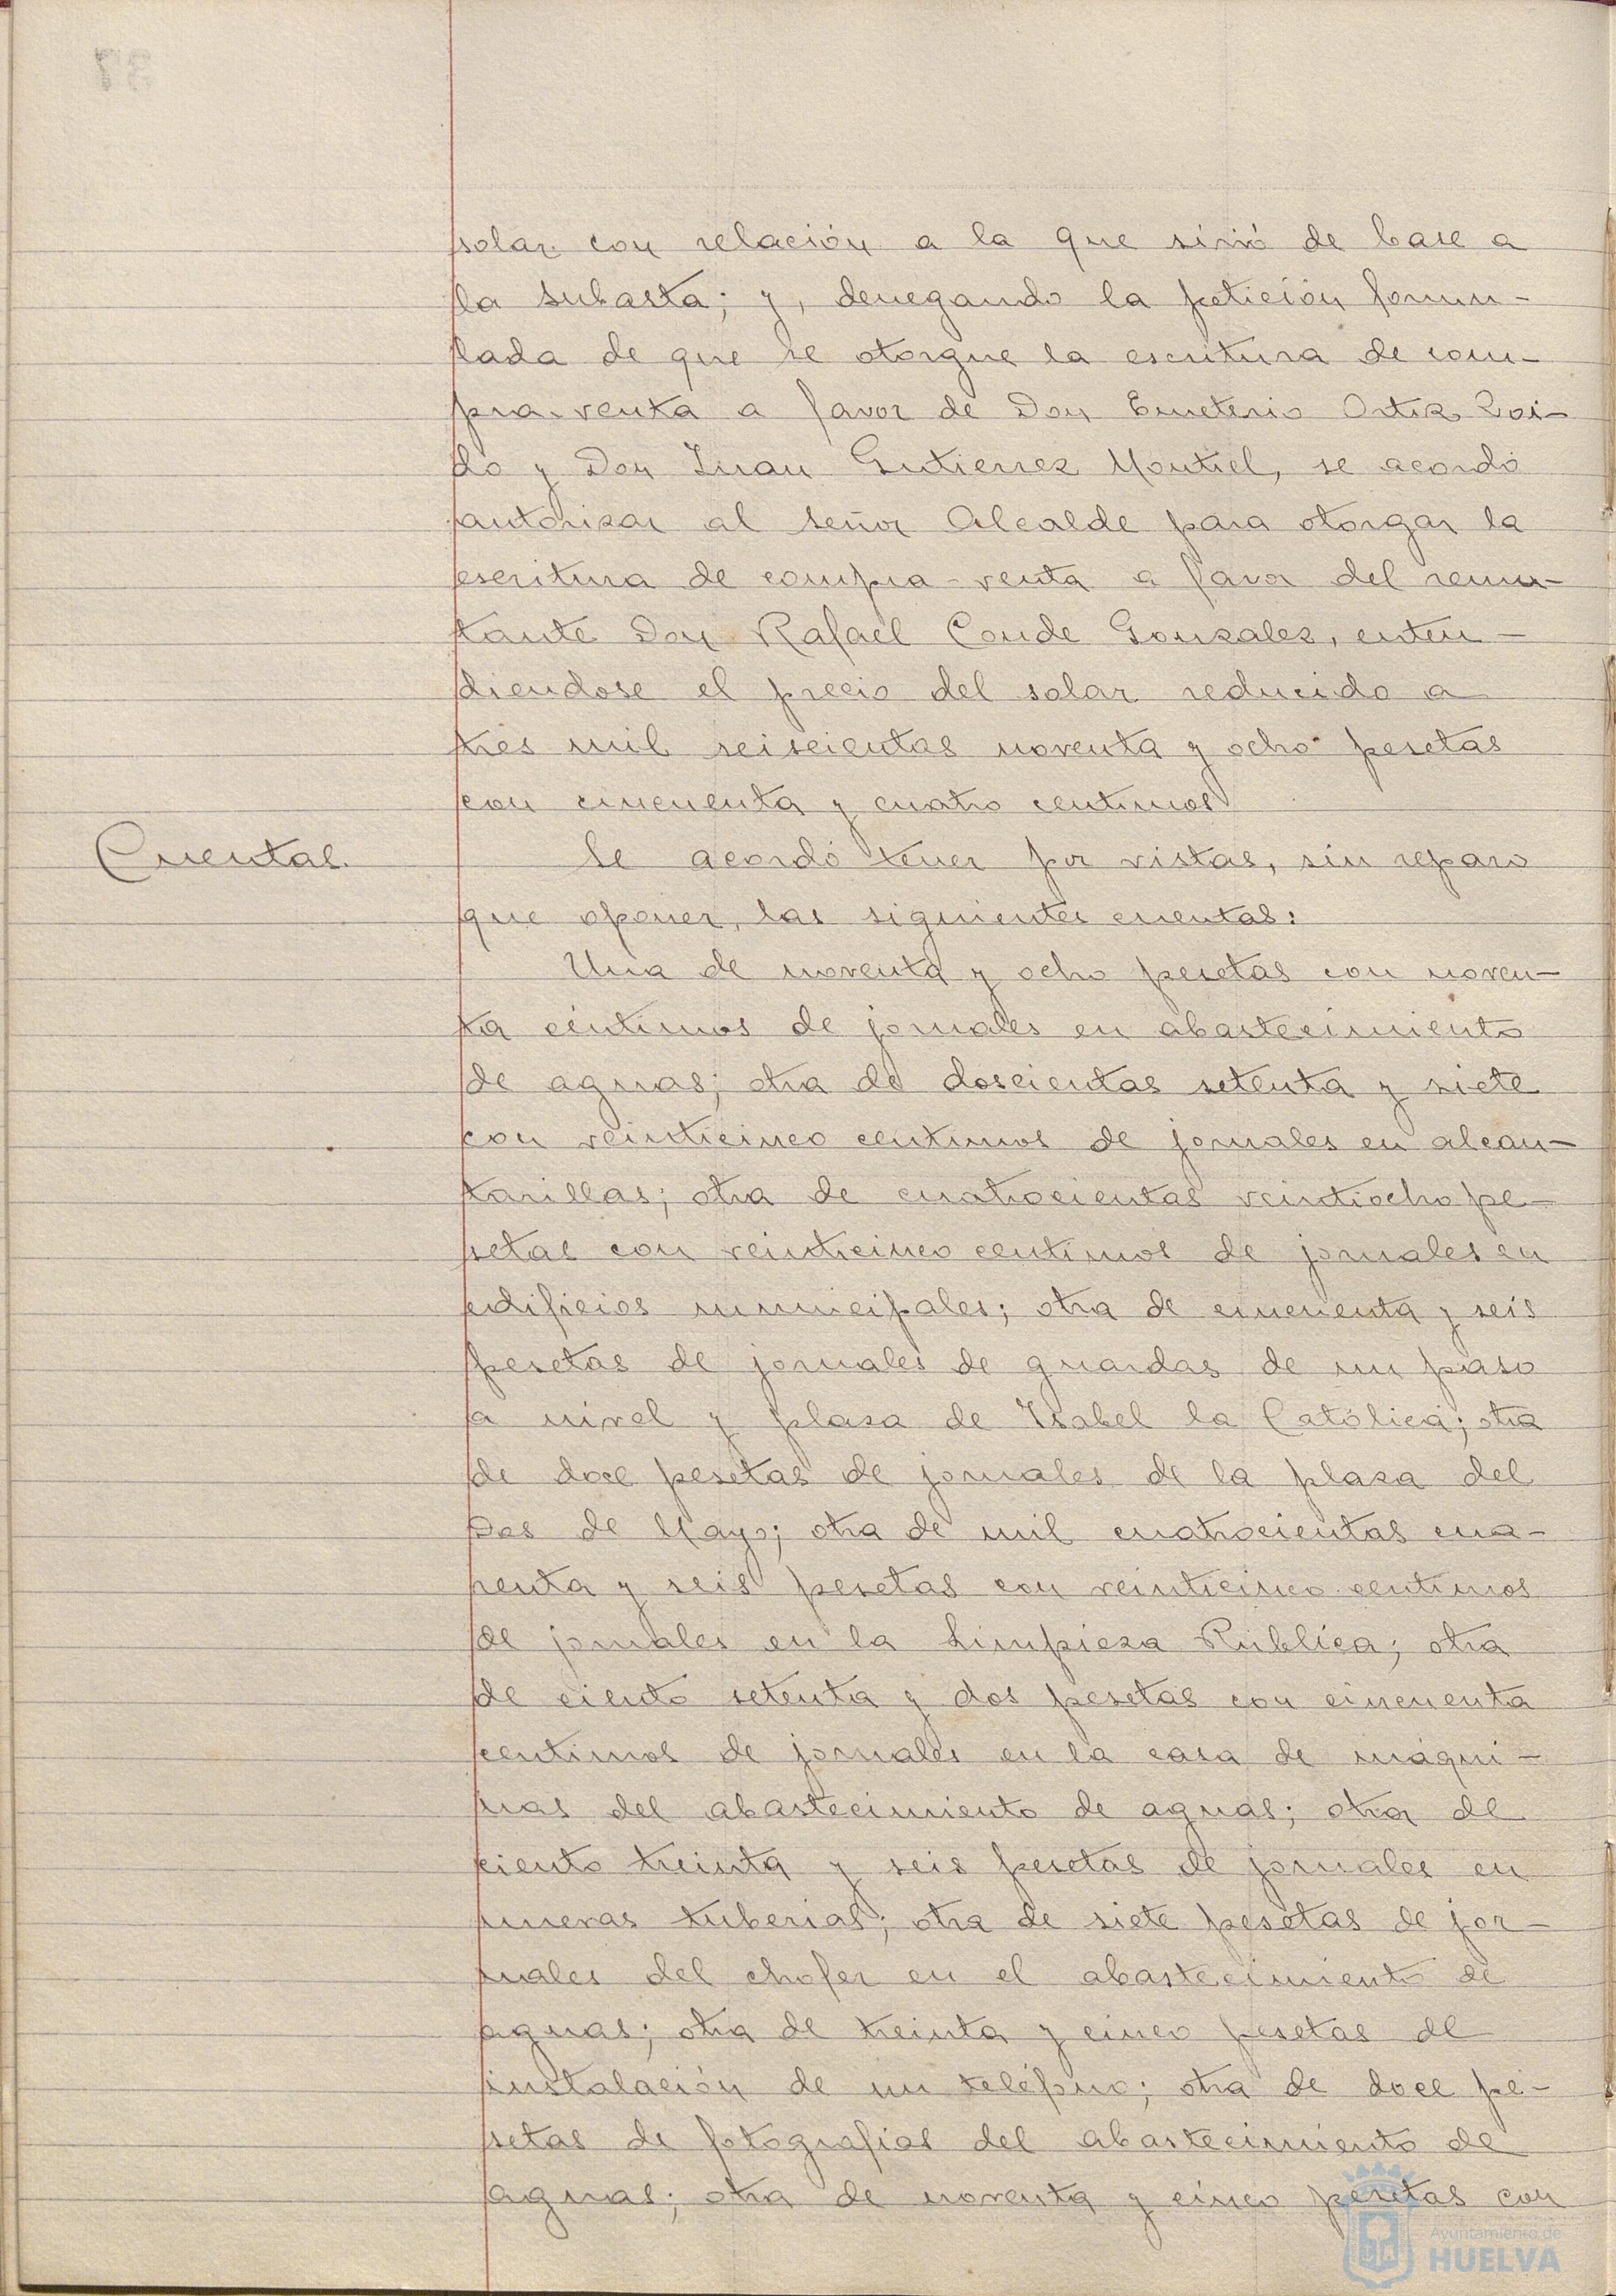 solar con relación a la que sirvió de base a
la subasta; y, denegando la petición formu-
lada de que se otorgue la escritura de com-
pra-venta a favor de Don Emeterio Ortiz
do y Don Juan Gutierrez Montiel, se acordó
autorizar al señor Alcalde para otorgar la
escritura de compra-venta a favor del rema-
tante Don Rafael Conde Gonzalez, enten-
diendose el precio del solar reducido a
tres mil seiscientas noventa y ocho pesetas
con cincuenta y cuatro centimos
Cuentas.
Se acordó tener por vistas, sin reparo
que oponer, las siguientes cuentas:
Una de noventa y ocho pesetas con noven-
ta céntimos de jornales en abastecimiento
de aguas; otra de doscientas setenta y siete
con veinticinco centimos de jornales en alcan-
tarillas; otra de cuatrocientas veintiocho pe-
setas con veinticinco centimos de jornales en
edificios municipales; otra de cincuenta y seis
pesetas de jornales de guardas de un paso
a nivel y plaza de Isabel la Católica; otra
de doce pesetas de jornales de la plaza del
Dos de Mayo; otra de mil cuatrocientas cua-
renta y seis pesetas con veinticinco centimos
de jornales en la Limpieza Pública; otra
de ciento setenta y dos pesetas con cincuenta
centimos de jornales en la casa de máqui-
nas del abastecimiento de aguas; otra de
ciento treinta y seis pesetas de jornales en
nuevas tuberias; otra de siete pesetas de jor-
nales del chofer en el abastecimiento de
aguas; otra de treinta y cinco pesetas de
instalación de un teléfono; otra de doce pe-
setas de fotografias del abastecimiento de
aguas; otra de noventa y cinco pesetas con
Ayuntamiento de
HUELVA